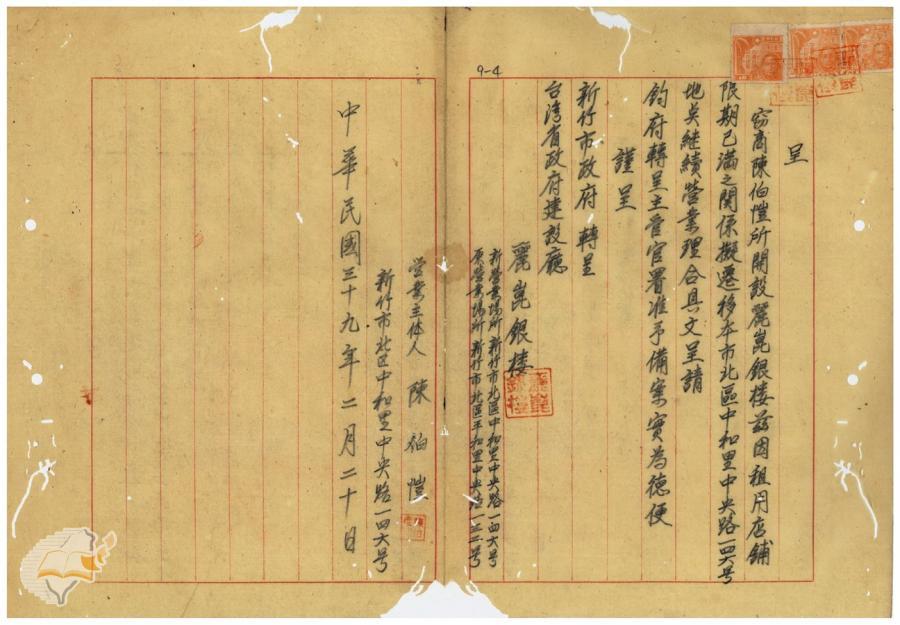 9-4
呈
窃商陳伯愷所開設麗崑銀楼茲因租用店鋪
限期已満之関係擬遷移本市北區中和里中央路一四六号
地矣継續營業理合具文呈請
鈞府轉呈主管官署准予備案實為德便
謹呈
新竹市政府 轉呈
台湾省政府建設廳
麗崑銀楼
新營業場所 新竹市北區中和里中央路一四六号
原營業場所 新竹市北區平和里中央路一三二号
営業主体人 陳伯愷
新竹市北区中和里中央路一四六号
中華民國三十九年二月二十日